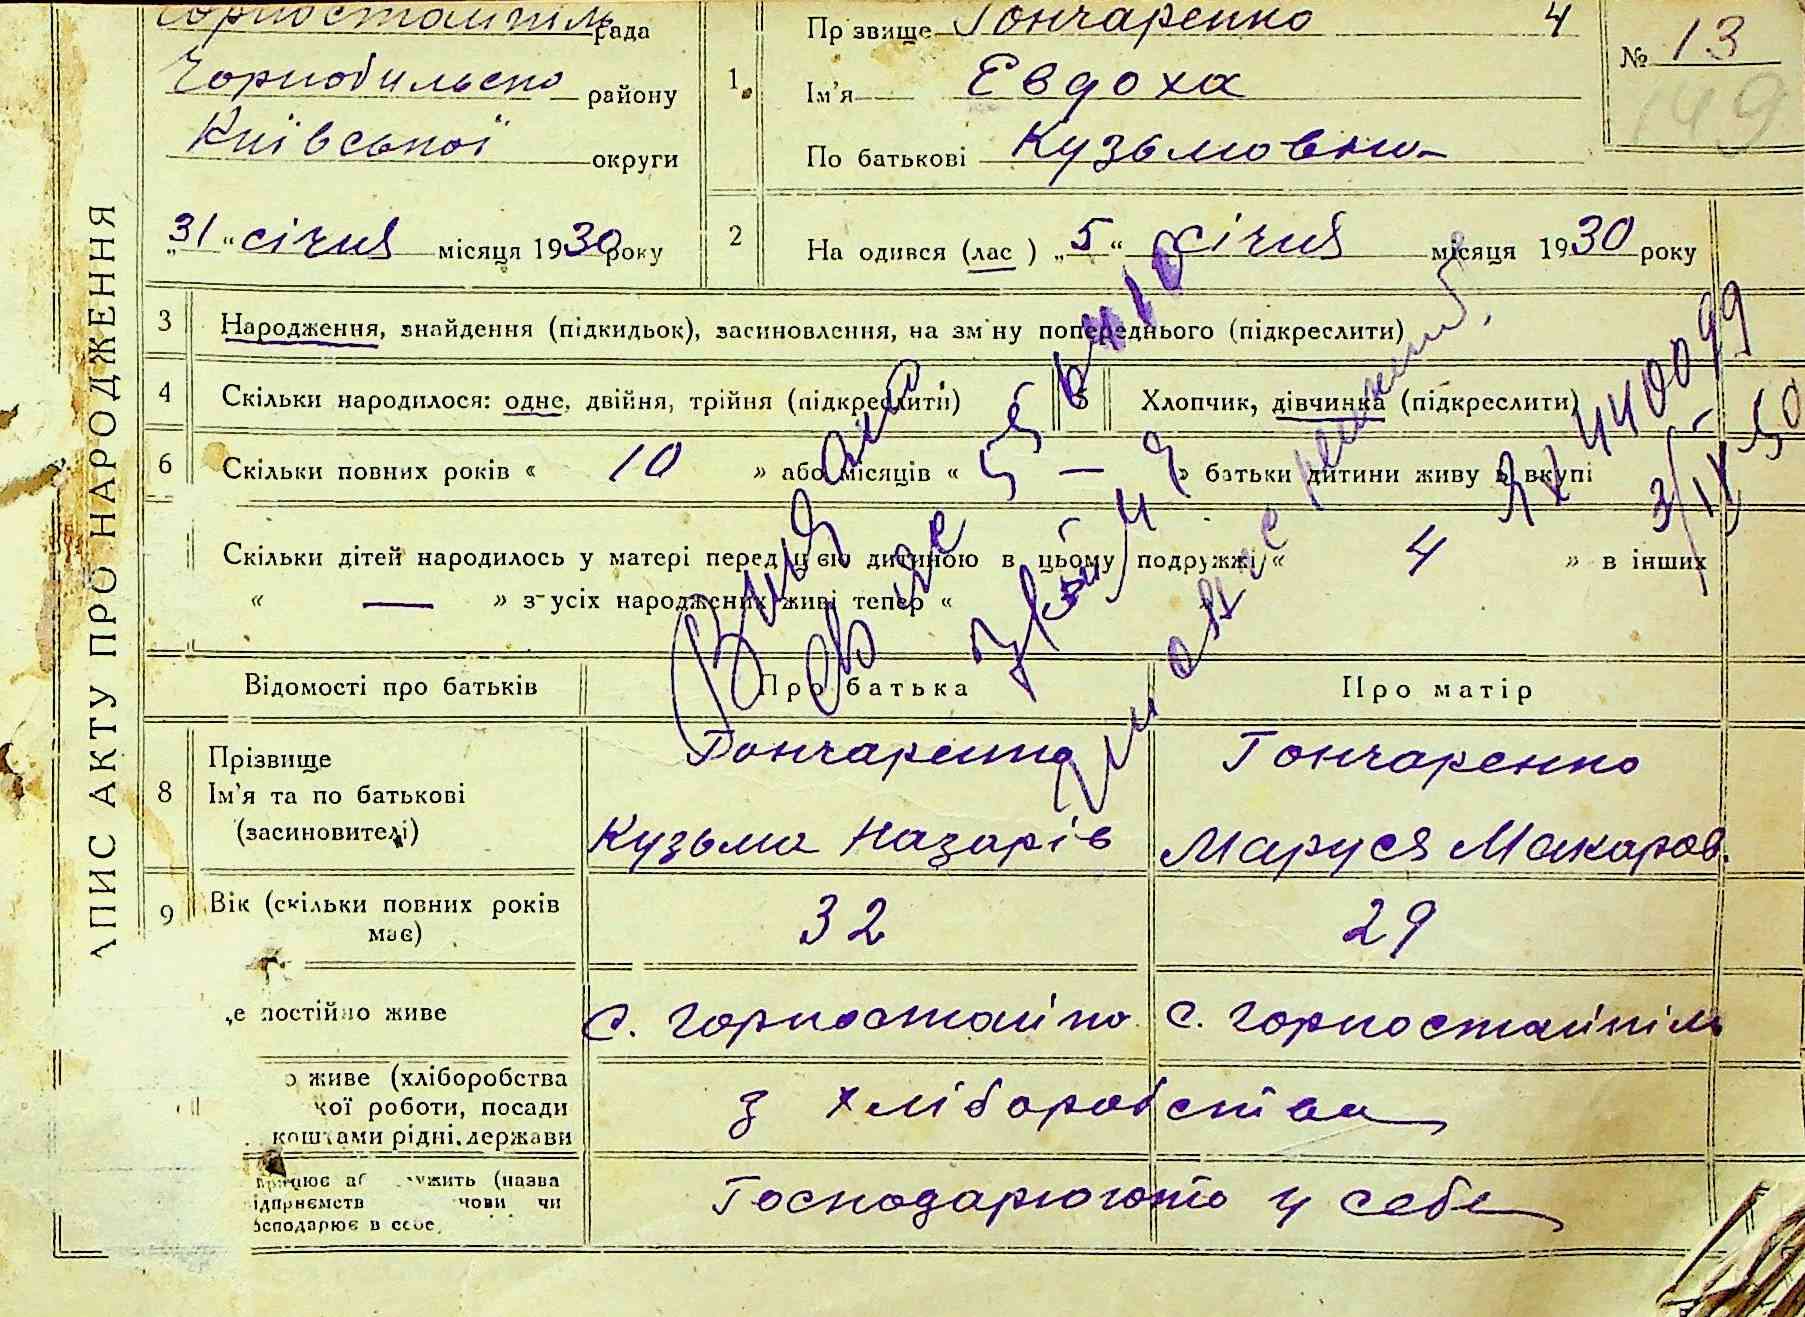 Горностайпіль рада
Чорнобильсько району
Київської округи
1. Прзвище Гончаренко 4
Ім'я Евдоха
По батькові Кузьмовна
№ 13
149
„31“ січня місяця 1930 року
2 На одився (лас ) „5“ січня місяця 1930 року
ПИС АКТУ ПРО НАРОДЖЕННЯ
3 Народження, знайдення (підкидьок), засиновлення, на зм ну попереднього (підкреслити)
4 Скільки народилося: одне, двійня, трійня (підкреслити)
5 Хлопчик, дівчинка (підкреслити)
6 Скільки повних років « 10 » або місяців « — » батьки дитини живу ь вкупі
Скільки дітей народилось у матері перед цією дитиною в цьому подружжі « 4 » в інших
« — » з усіх народжених живі тепер « »
440099
3/IX 50
Відомості про батьків Про батька Про матір
8 Прізвище
Ім'я та по батькові
(засиновителі)
Гончаренко
Кузьма Назарів
Гончаренко
Маруся Макаров.
9 Вік (скільки повних років
має)
32 29
е постійно живе с. Горностайпо с. Горностайпіль
о живе (хліборобства
кої роботи, посади
коштами рідні, держави
з хліборобства
працює аб ужить (назва
ідприємств нови чи
осподарює в себе,
Господарюють у себе